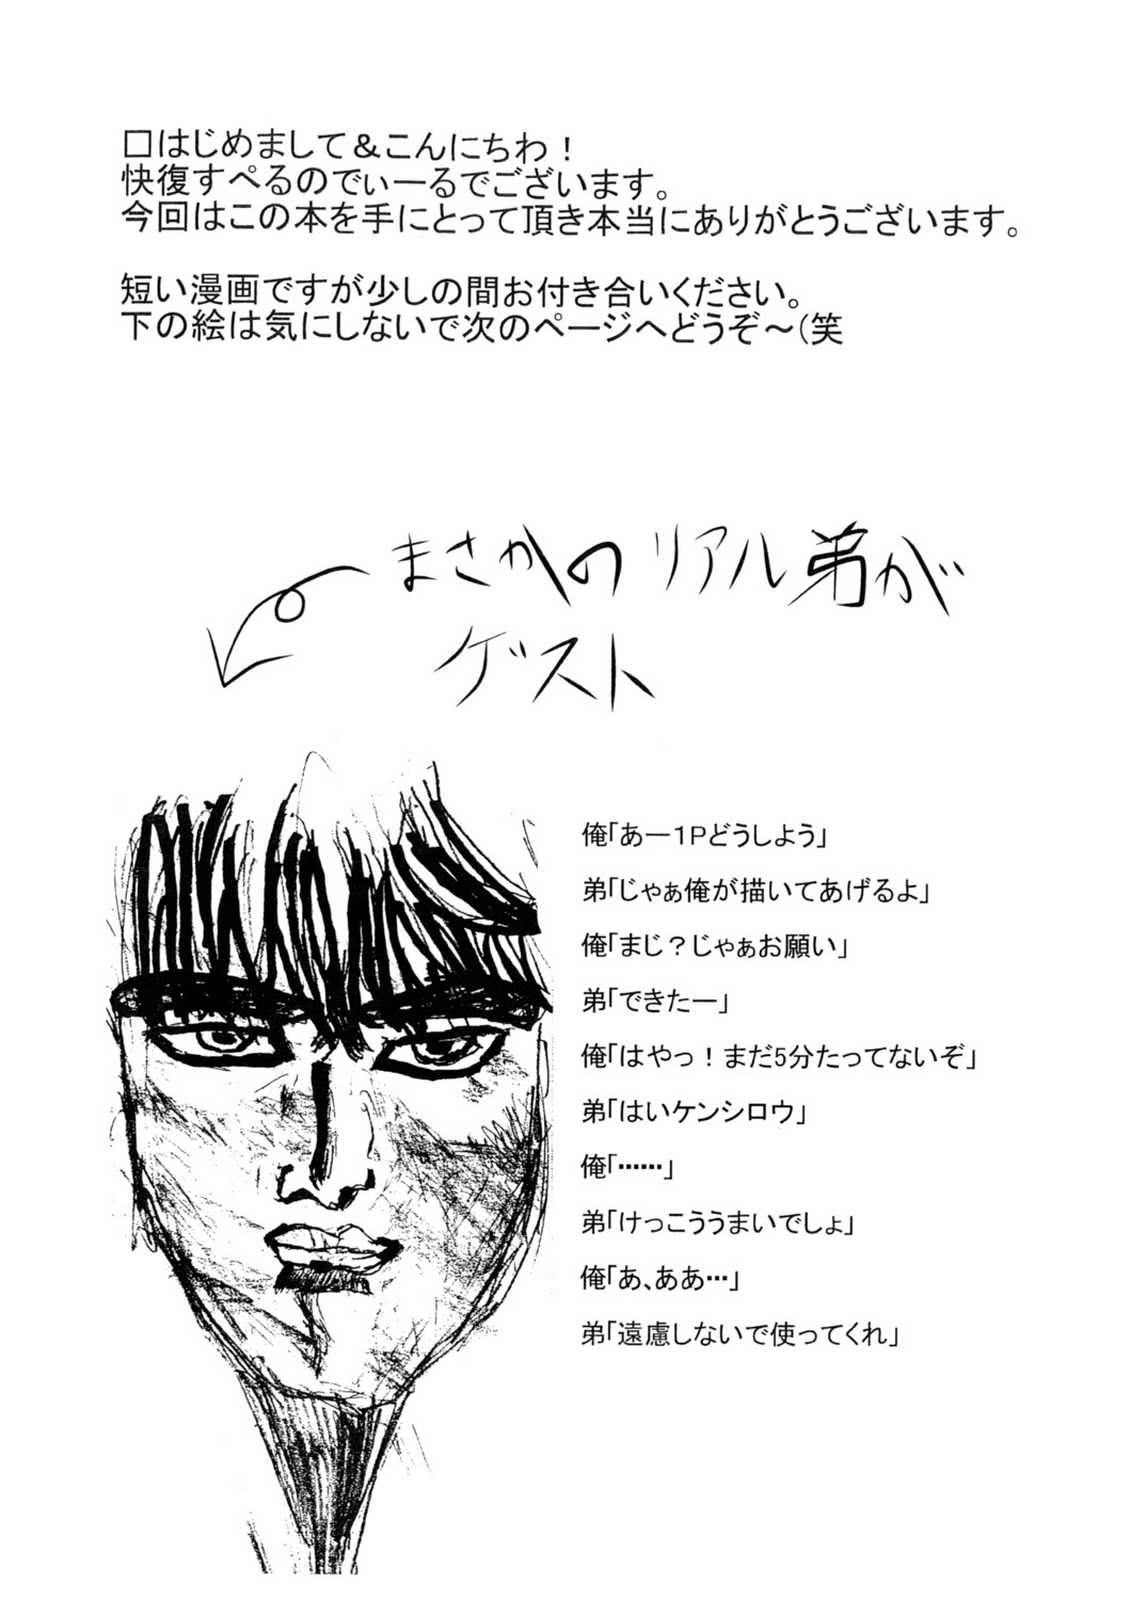 □はじめまして＆こんにちわ！
快復すぺるのでぃーるでございます。
今回はこの本を手にとって頂き本当にありがとうございます。
短い漫画ですが少しの間お付き合いください。
下の絵は気にしないで次のページへどうぞ～(笑
まさかのリアル弟が
ゲスト
俺「あー１Ｐどうしよう」
弟「じゃぁ俺が描いてあげるよ」
俺「まじ？じゃぁお願い」
弟「できたー」
俺「はやっ！まだ5分たってないぞ」
弟「はいケンシロウ」
俺「……」
弟「けっこううまいでしょ」
俺「あ、ああ…」
弟「遠慮しないで使ってくれ」